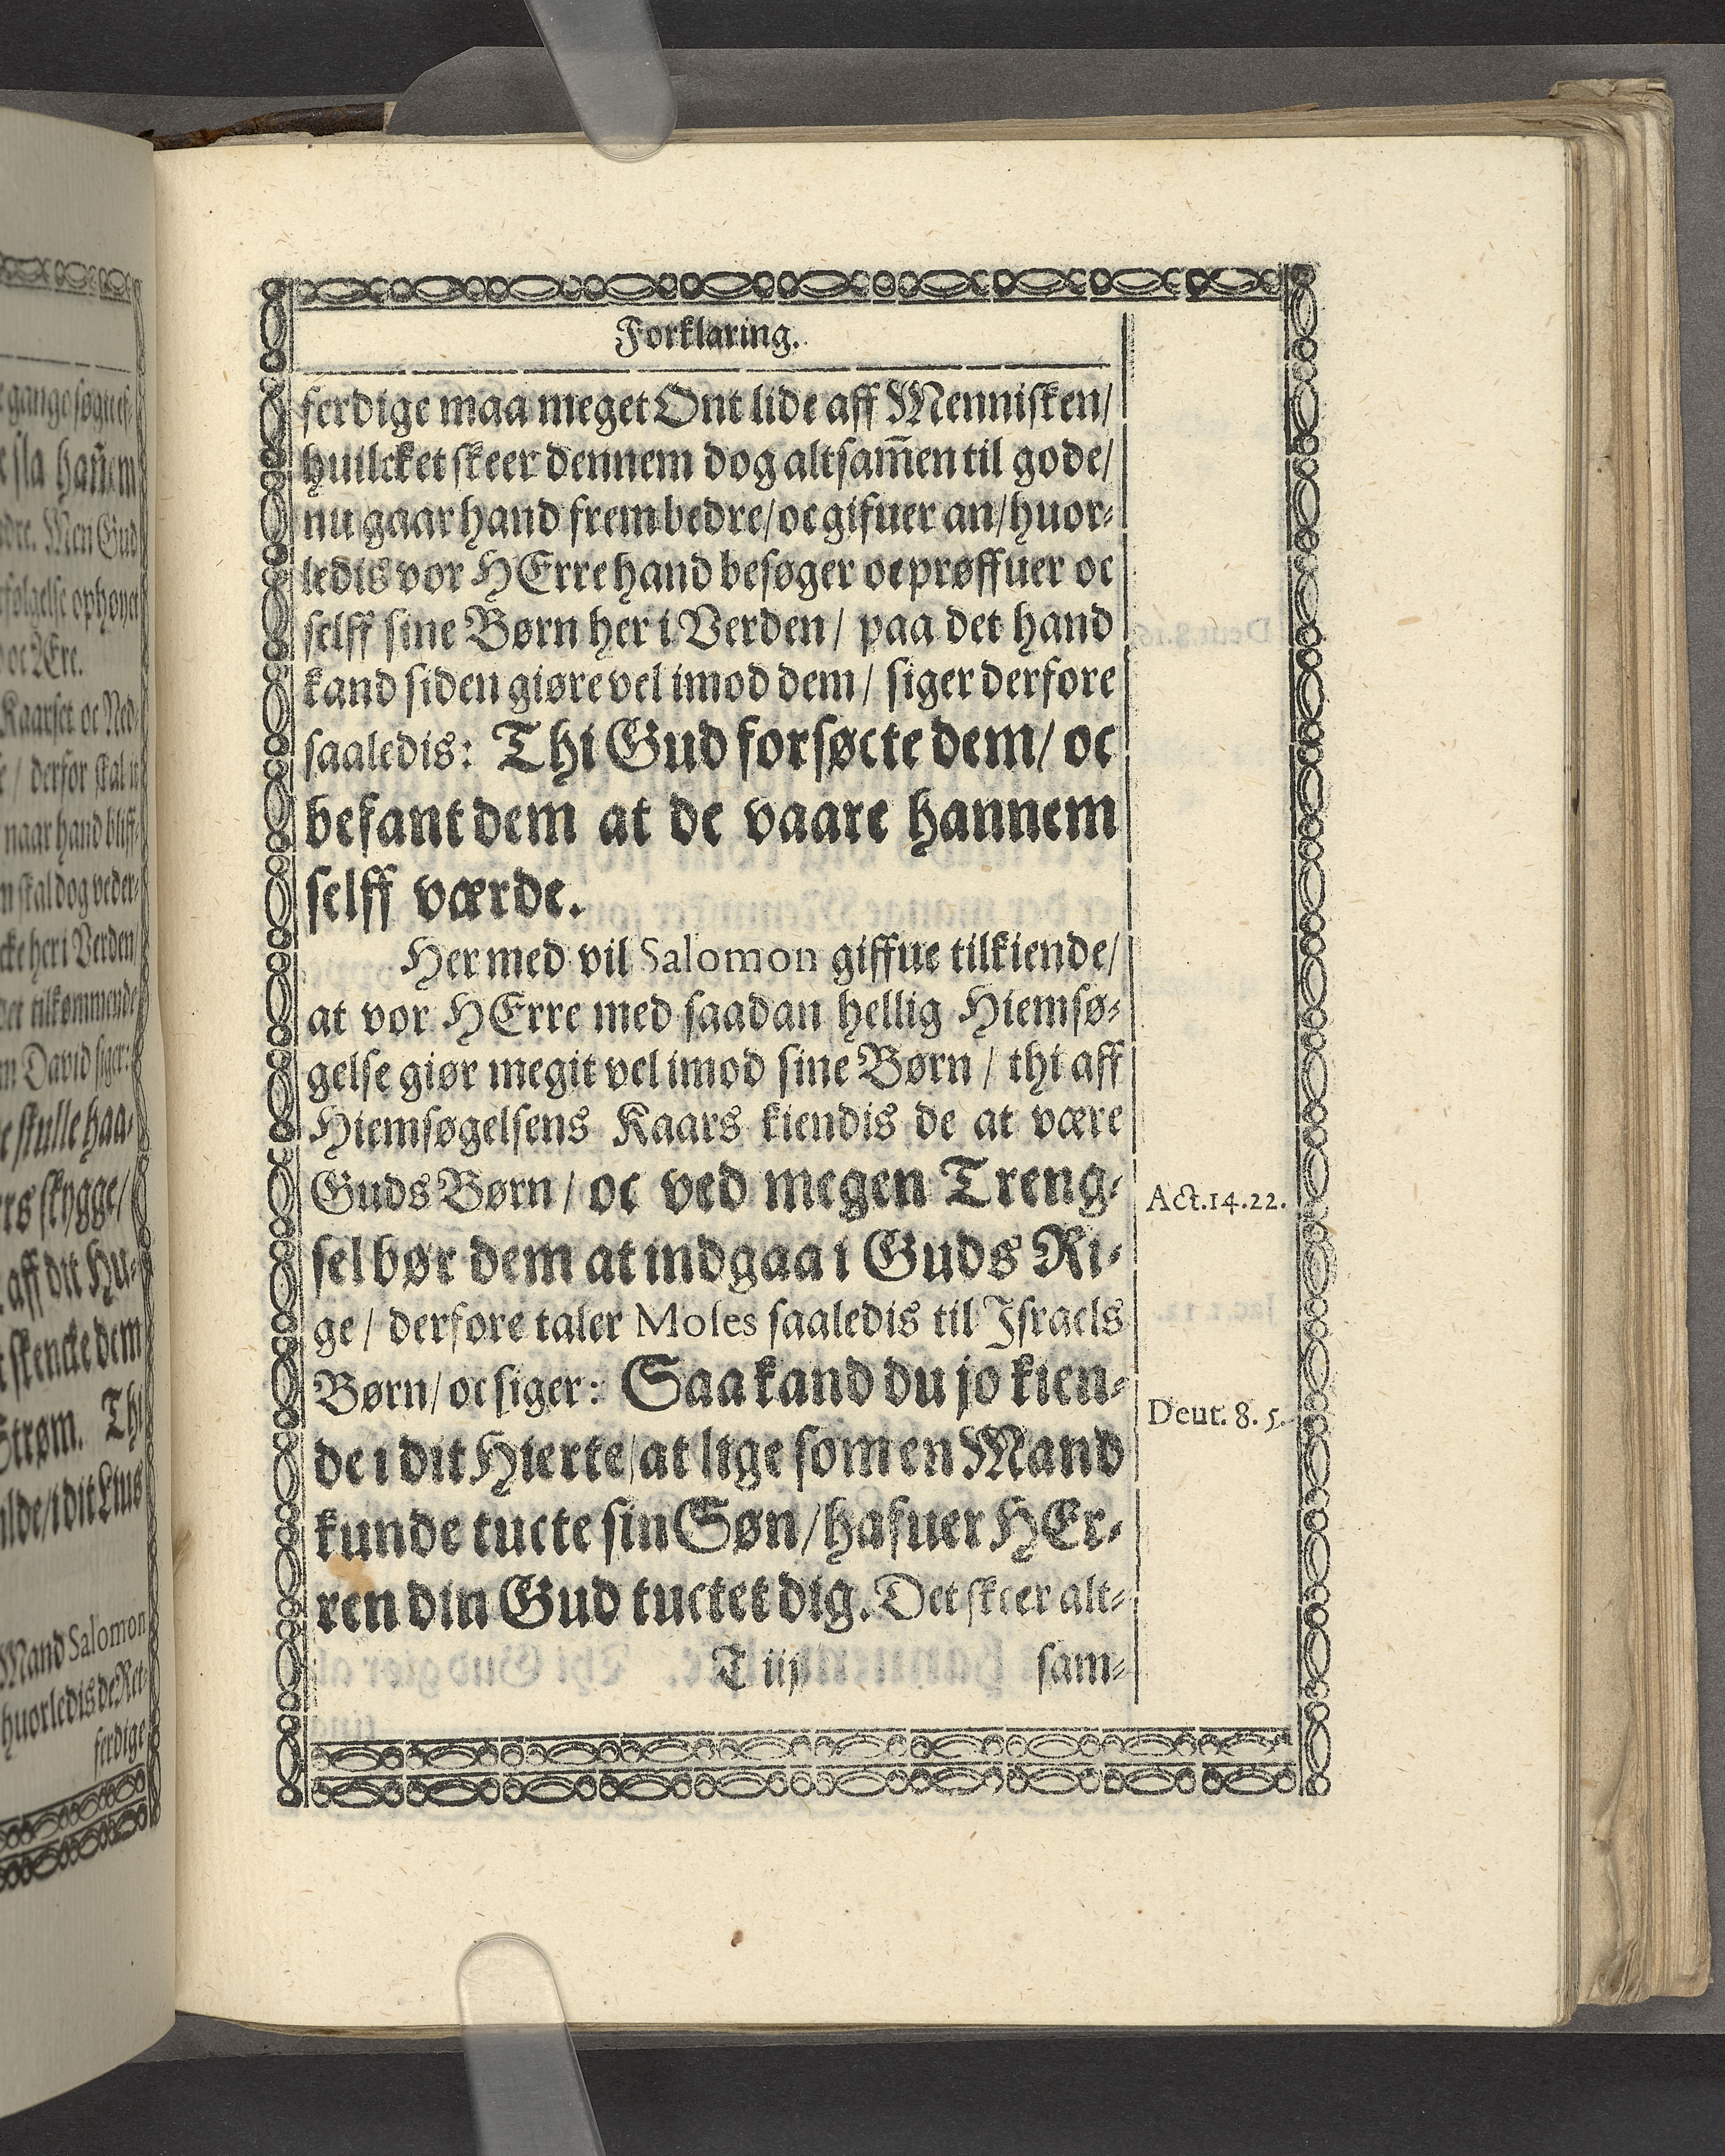 Forklaring.
ferdige maa meget Ont lide aff Mennisken/
huilcket skeer dennem dog altsam̄en til gode/
nu gaar hand frem bedre/ oc gifuer an/ huor-
ledis vor HErre hand besøger oc prøffuer oc
selff sine Børn her i Verden/ paa det hand
kand siden giøre vel imod dem/ siger derfore
saaledis: Thi Gud forsøcte dem/ oc
befant dem at de vaare hannem
selff værde.
Her med vil Salomon giffue tilkiende/
at vor HErre med saadan hellig Hiemsø-
gelse giør megit vel imod sine Børn / thi aff
Hiemsøgelsens Kaars kiendis de at være
Guds Børn / oc ved megen Treng-
Act. 14. 22.
sel bør dem at indgaa i Guds Ri-
ge / derfore taler Moses saaledis til Israels
Børn/ oc siger: Saa kand du jo kien-
Deut. 8. 5.
de i dit Hierte/ at lige som en Mand
kunde tucte sin Søn/ hafuer HEr-
ren din Gud tuctet dig. Det skeer alt-
T iij
sam-
gange søgt ef-
sla han̄em
Men Gud
ophøyet
oc Ære.
Kaarset oc Ned-
/ derfor skal
naar hand bliff-
skal dog veder-
her i Verden
Det tilkommende
David siger:
skulle haa-
skygge/
aff dit Hu-
skencke dem
Strøm. Thi
i dit Lius
Mand Salomon
huorledis de Ret-
ferdige